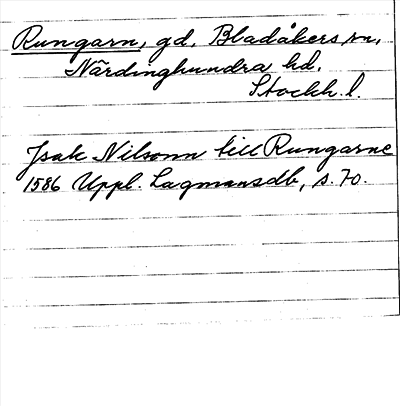 Rungarn, gd, Bladåkers sn,
Närdinghundra hd.
Stockh. l.
Jsak Nilsonn till Rungarne
1586 Uppl. Lagmansdb, s. 70.